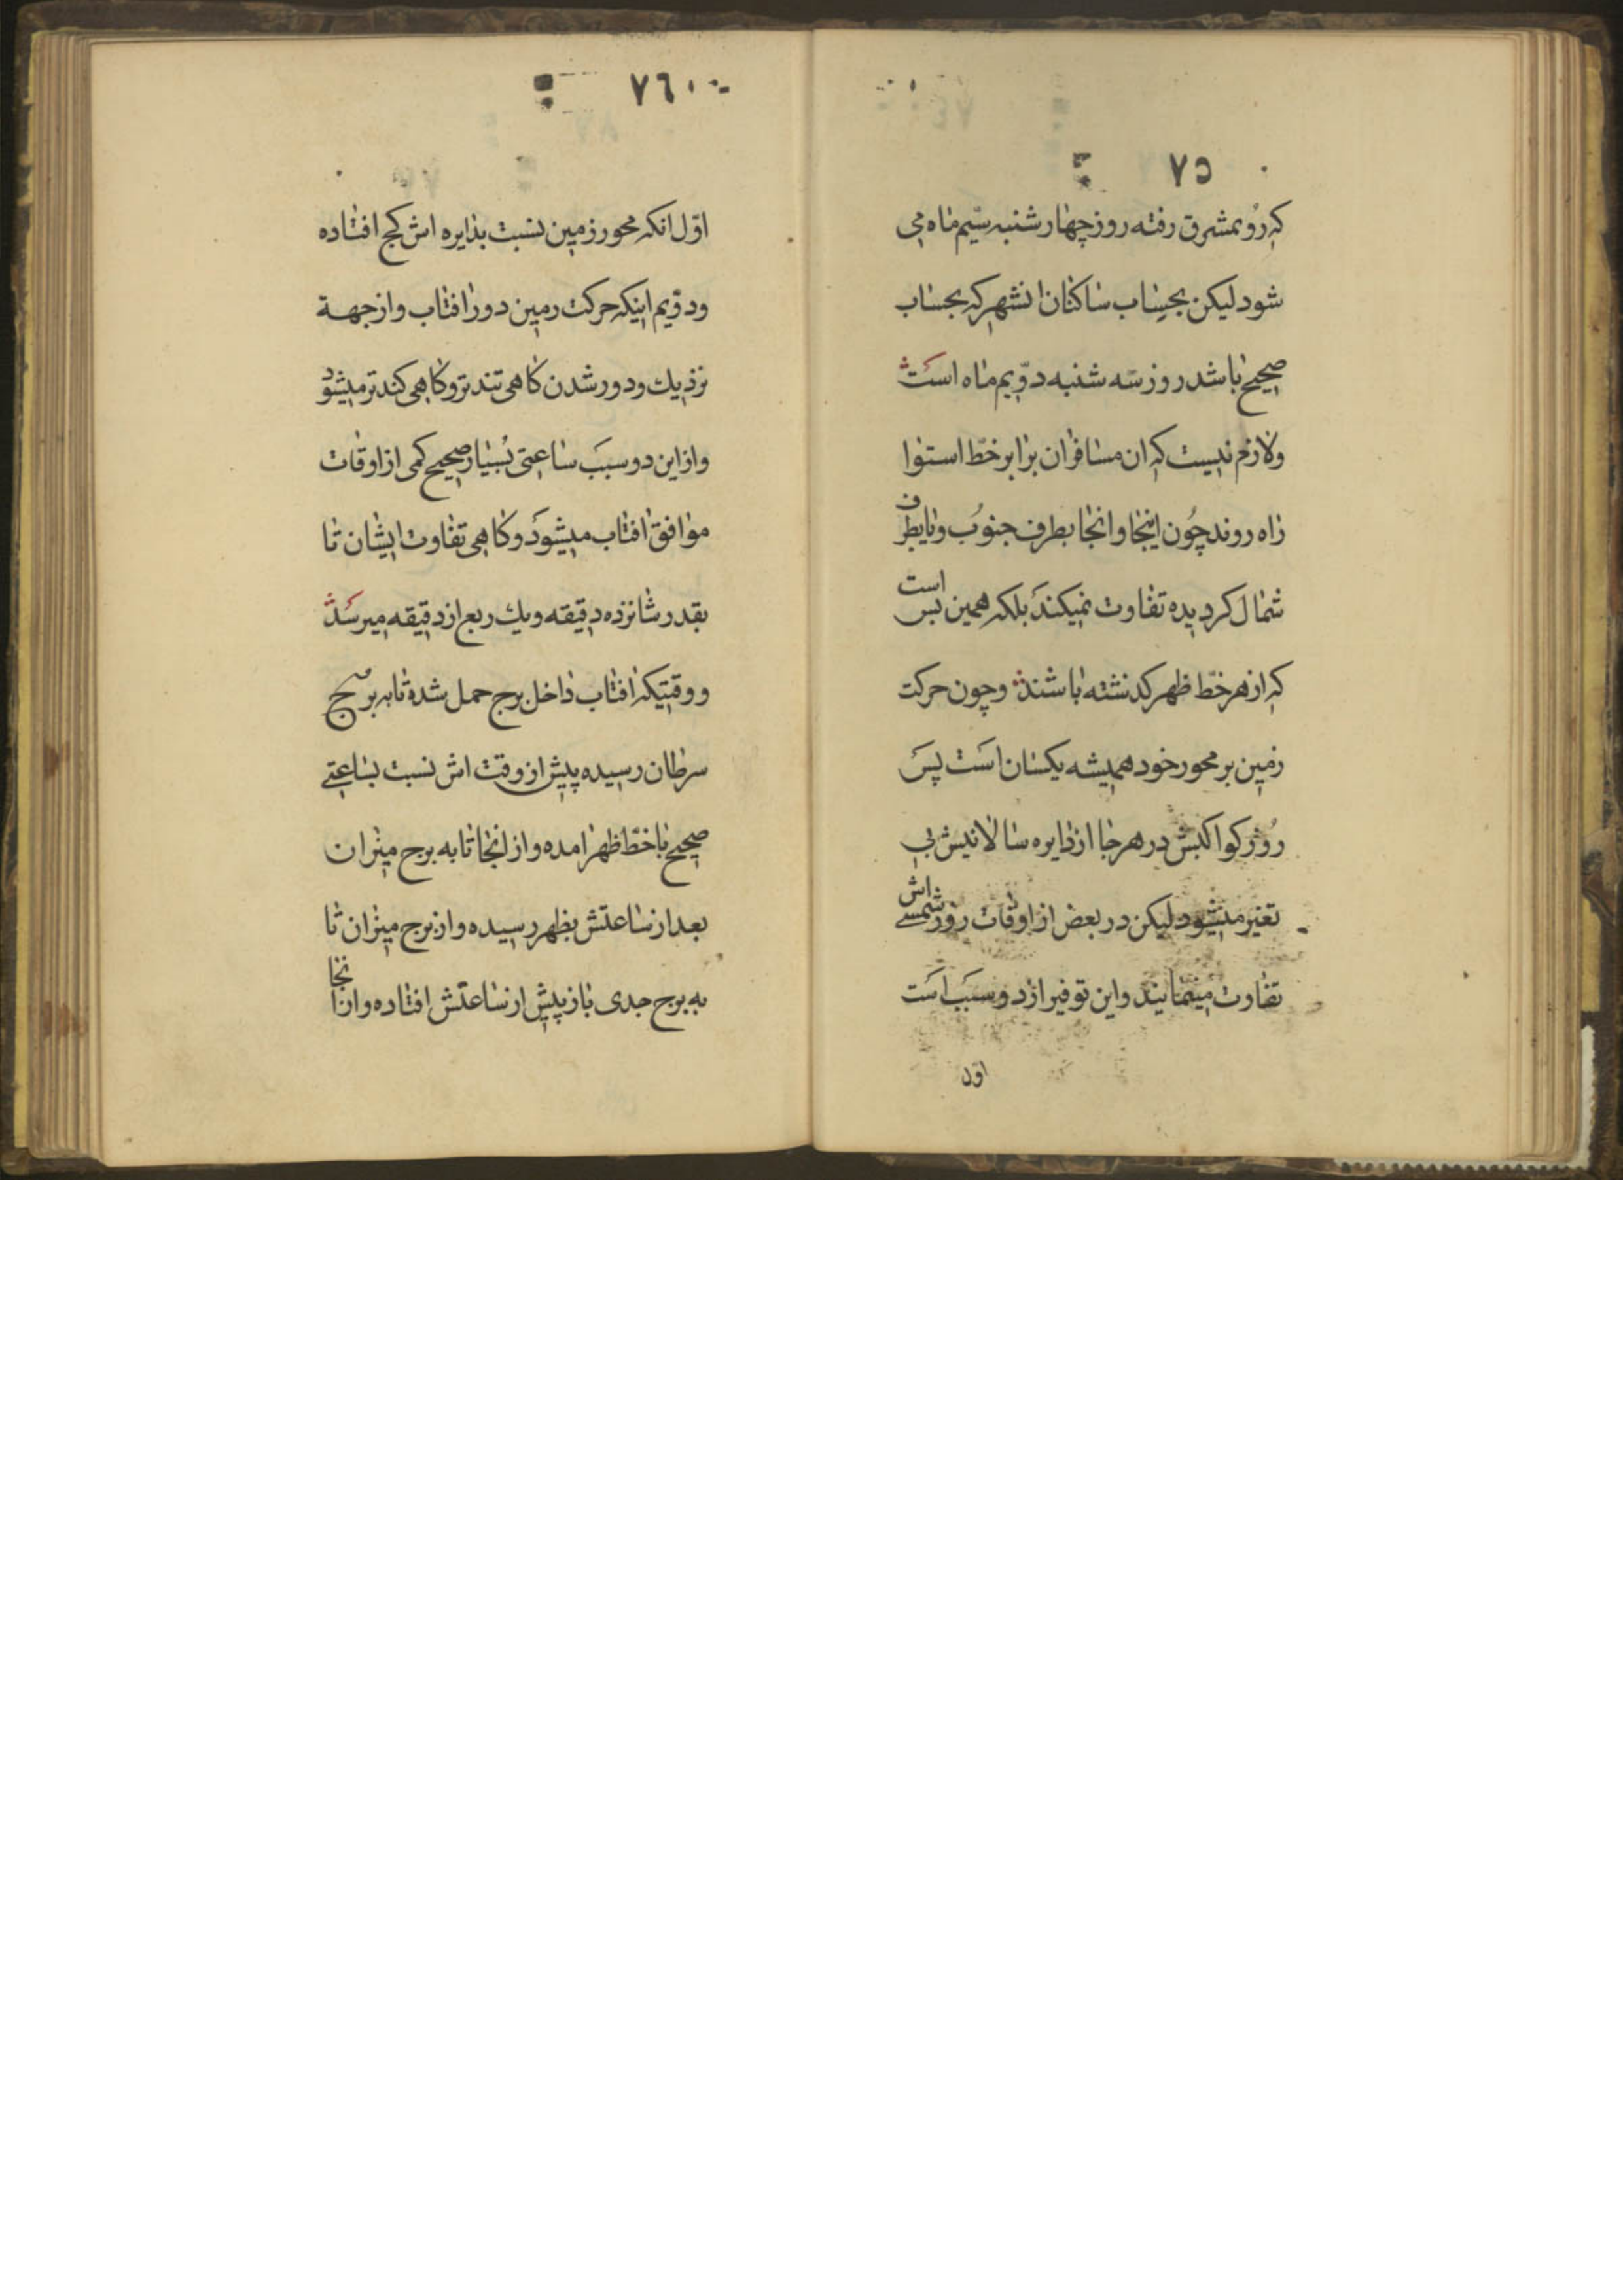 ٧٥
که رو بمشرق رفته روز چهار شنبه سیّم ماه می
شود لیکن بحساب ساکنان انشهر که بحساب
صحیح باشد روز سه شنبه دوّیم ماه است
ولازم نیست که ان مسافران برابر خطّ استوا
راه روند چون اینجا وانجا بطرف جنوب ویا بطرف
شمال کردیده تفاوت نمیکند بلکه همین بس است
که از هر خطّ ظهر کذشته باشند وچون حرکت
زمین بر محور خود همیشه یکسان است پس
روز کواکبش در هر جا از دایره سالانیش بی
تغیر میشود لیکن در بعض از اوقات روز شمسی اش
تفاوت مینمایند واین توفیر از دو سبب است
اوّل
٧٦
اوّل انکه محور زمین نسبت بدایره اش کج افتاده
ودوّیم اینکه حرکت زمین دور افتاب واز جهة
نزدیك ودور شدن کاهی تند تر وکاهی کند تر میشود
واز این دو سبب ساعتی بسیار صحیح کمی از اوقات
موافق افتاب میشود وکاهی تفاوت ایشان تا
بقدر شانزده دقیقه ویك ربع از دقیقه میرسد
ووقتیکه افتاب داخل برج حمل شده تا به برج
سرطان رسیده پیش از وقت اش نسبت بساعتی
صحیح با خطّ ظهر امده واز انجا تا به برج میزان
بعد از ساعتش بظهر رسیده واز برج میزان تا
به برج جدی باز پیش از ساعتش افتاده واز انجا